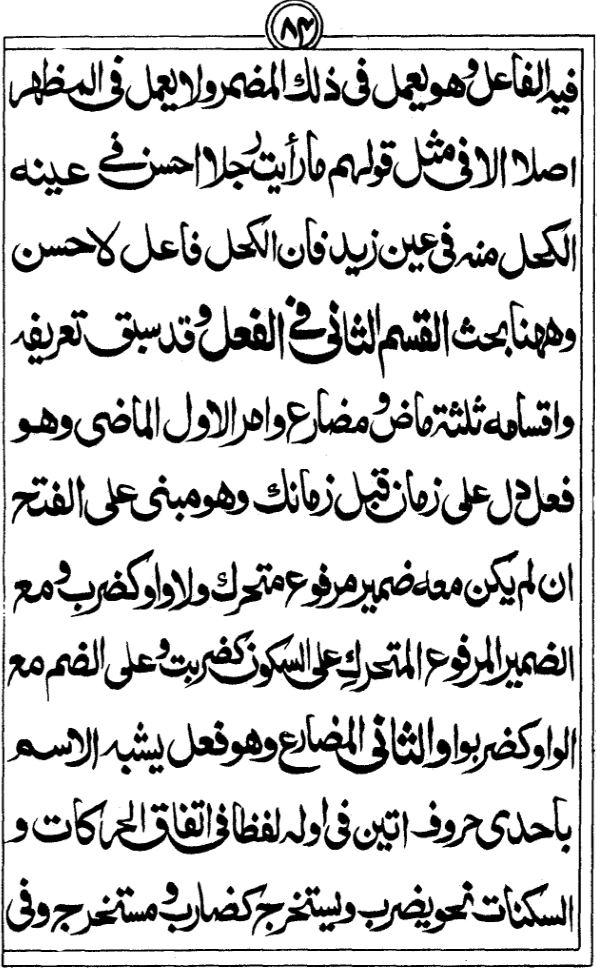 ۸۴
فيه الفاعل وهو يعمل فى ذلك المضمر ولا يعمل فى المظهر
اصلا الا فى مثل قولهم ما رأيت رجلا احسن فے عينه
الكحل منه فى عين زيد فان الكحل فاعل لاحسن
وههنا بحث القسم الثانى فے الفعل وقد سبق تعريفه
واقسامه ثلثة ماض ومضارع وامر الاول الماضى وهو
فعل دل على زمان قبل زمانك وهو مبنى على الفتح
ان لم يكن معه ضمير مرفوع متحرك ولا واو كضرب ومع
الضمير المرفوع المتحرك على السكون كضربت وعلى الضم مع
الواو كضربوا والثانى المضارع وهو فعل يشبه الاسم
باحدى حروف اتين فى اوله لفظا فى اتفاق الحركات و
السكنات نحو يضرب ويستخرج كضارب ومستخرج وفى